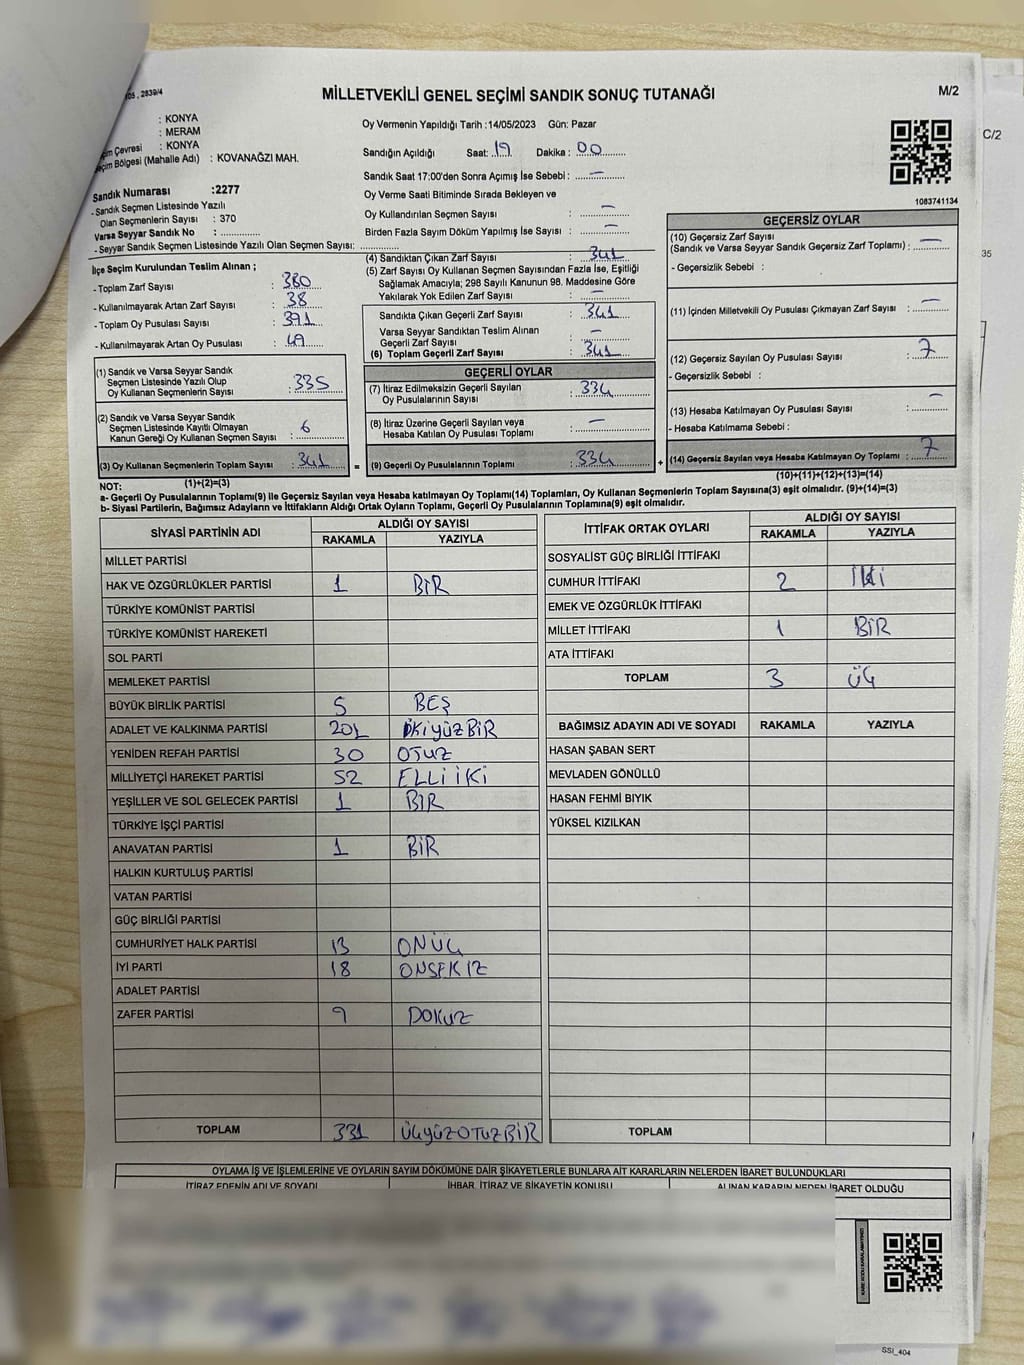 05 , 2839/4
MİLLETVEKİLİ GENEL SEÇİMİ SANDIK SONUÇ TUTANAĞI
M/2
C/2
: KONYA
: MERAM
Çevresi : KONYA
Bölgesi (Mahalle Adı) : KOVANAĞZI MAH.
Sandık Numarası :2277
- Sandık Seçmen Listesinde Yazılı
Olan Seçmenlerin Sayısı : 370
Varsa Seyyar Sandık No : ..............
- Seyyar Sandık Seçmen Listesinde Yazılı Olan Seçmen Sayısı: ..............
Oy Vermenin Yapıldığı Tarih :14/05/2023 Gün: Pazar
Sandığın Açıldığı Saat: 19 Dakika : 00
Sandık Saat 17:00'den Sonra Açımış İse Sebebi : —
Oy Verme Saati Bitiminde Sırada Bekleyen ve
Oy Kullandırılan Seçmen Sayısı : —
Birden Fazla Sayım Döküm Yapılmış İse Sayısı : —
1083741134
35
İlçe Seçim Kurulundan Teslim Alınan ;
- Toplam Zarf Sayısı : 380
- Kullanılmayarak Artan Zarf Sayısı : 38
- Toplam Oy Pusulası Sayısı : 391
- Kullanılmayarak Artan Oy Pusulası : 49
(1) Sandık ve Varsa Seyyar Sandık
Seçmen Listesinde Yazılı Olup
Oy Kullanan Seçmenlerin Sayısı : 335
(2) Sandık ve Varsa Seyyar Sandık
Seçmen Listesinde Kayıtlı Olmayan
Kanun Gereği Oy Kullanan Seçmen Sayısı : 6
(3) Oy Kullanan Seçmenlerin Toplam Sayısı : 341
(1)+(2)=(3)
(4) Sandıktan Çıkan Zarf Sayısı : 341
(5) Zarf Sayısı Oy Kullanan Seçmen Sayısından Fazla İse, Eşitliği
Sağlamak Amacıyla; 298 Sayılı Kanunun 98. Maddesine Göre
Yakılarak Yok Edilen Zarf Sayısı : —
Sandıkta Çıkan Geçerli Zarf Sayısı : 341
Varsa Seyyar Sandıktan Teslim Alınan
Geçerli Zarf Sayısı : —
(6) Toplam Geçerli Zarf Sayısı : 341
GEÇERLİ OYLAR
(7) İtiraz Edilmeksizin Geçerli Sayılan
Oy Pusulalarının Sayısı : 334
(8) İtiraz Üzerine Geçerli Sayılan veya
Hesaba Katılan Oy Pusulası Toplamı : —
= (9) Geçerli Oy Pusulalarının Toplamı : 334
GEÇERSİZ OYLAR
(10) Geçersiz Zarf Sayısı
(Sandık ve Varsa Seyyar Sandık Geçersiz Zarf Toplamı) : —
- Geçersizlik Sebebi :
(11) İçinden Milletvekili Oy Pusulası Çıkmayan Zarf Sayısı : —
(12) Geçersiz Sayılan Oy Pusulası Sayısı : 7
- Geçersizlik Sebebi :
(13) Hesaba Katılmayan Oy Pusulası Sayısı : —
- Hesaba Katılmama Sebebi :
+ (14) Geçersiz Sayılan veya Hesaba Katılmayan Oy Toplamı : 7
(10)+(11)+(12)+(13)=(14)
NOT:
a- Geçerli Oy Pusulalarının Toplamı(9) ile Geçersiz Sayılan veya Hesaba katılmayan Oy Toplamı(14) Toplamları, Oy Kullanan Seçmenlerin Toplam Sayısına(3) eşit olmalıdır. (9)+(14)=(3)
b- Siyasi Partilerin, Bağımsız Adayların ve İttifakların Aldığı Ortak Oyların Toplamı, Geçerli Oy Pusulalarının Toplamına(9) eşit olmalıdır.
SİYASİ PARTİNİN ADI
ALDIĞI OY SAYISI
RAKAMLA YAZIYLA
MİLLET PARTİSİ
HAK VE ÖZGÜRLÜKLER PARTİSİ 1 BİR
TÜRKİYE KOMÜNİST PARTİSİ
TÜRKİYE KOMÜNİST HAREKETİ
SOL PARTİ
MEMLEKET PARTİSİ
BÜYÜK BİRLİK PARTİSİ 5 BEŞ
ADALET VE KALKINMA PARTİSİ 201 İKİYÜZBİR
YENİDEN REFAH PARTİSİ 30 OTUZ
MİLLİYETÇİ HAREKET PARTİSİ 52 ELLİ İKİ
YEŞİLLER VE SOL GELECEK PARTİSİ 1 BİR
TÜRKİYE İŞÇİ PARTİSİ
ANAVATAN PARTİSİ 1 BİR
HALKIN KURTULUŞ PARTİSİ
VATAN PARTİSİ
GÜÇ BİRLİĞİ PARTİSİ
CUMHURİYET HALK PARTİSİ 13 ONÜÇ
İYİ PARTİ 18 ONSEKİZ
ADALET PARTİSİ
ZAFER PARTİSİ 9 DOKUZ
TOPLAM 331 ÜÇYÜZOTUZBİR
İTTİFAK ORTAK OYLARI
ALDIĞI OY SAYISI
RAKAMLA YAZIYLA
SOSYALİST GÜÇ BİRLİĞİ İTTİFAKI
CUMHUR İTTİFAKI 2 İKİ
EMEK VE ÖZGÜRLÜK İTTİFAKI
MİLLET İTTİFAKI 1 BİR
ATA İTTİFAKI
TOPLAM 3 ÜÇ
BAĞIMSIZ ADAYIN ADI VE SOYADI RAKAMLA YAZIYLA
HASAN ŞABAN SERT
MEVLADEN GÖNÜLLÜ
HASAN FEHMİ BIYIK
YÜKSEL KIZILKAN
TOPLAM
OYLAMA İŞ VE İŞLEMLERİNE VE OYLARIN SAYIM DÖKÜMÜNE DAİR ŞİKAYETLERLE BUNLARA AİT KARARLARIN NELERDEN İBARET BULUNDUKLARI
İTİRAZ EDENİN ADI VE SOYADI İHBAR, İTİRAZ VE ŞİKAYETİN KONUSU ALINAN KARARIN NEDEN İBARET OLDUĞU
SSİ_404